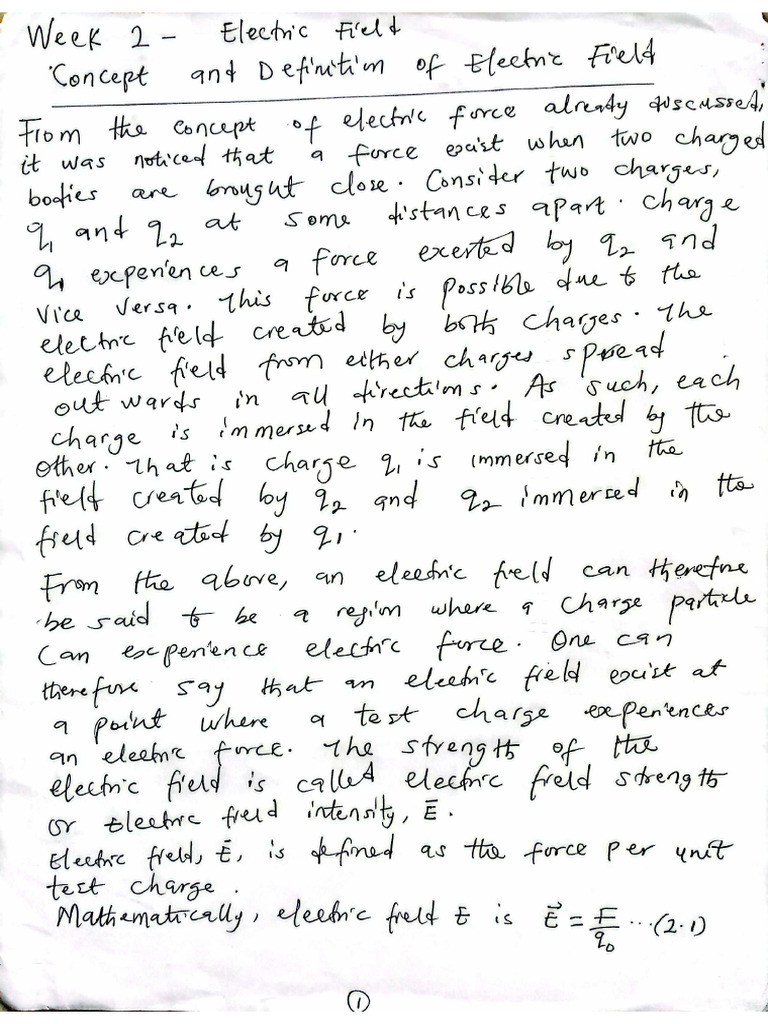 Week 2 - Electric Field
Concept and Definition of Electric Field
From the concept of electric force already discussed,
it was noticed that a force exist when two charged
bodies are brought close. Consider two charges,
q₁ and q₂ at some distances apart. Charge
q₁ experiences a force exerted by q₂ and
vice versa. This force is possible due to the
electric field created by both charges. The
electric field from either charges spread
out wards in all directions. As such, each
charge is immersed in the field created by the
other. That is charge q₁ is immersed in the
field created by q₂ and q₂ immersed in the
field created by q₁.
From the above, an electric field can therefore
be said to be a region where a charge particle
can experience electric force. One can
therefore say that an electric field exist at
a point where a test charge experiences
an electric force. The strength of the
electric field is called electric field strength
or Electric field intensity, E̅.
Electric field, E̅, is defined as the force per unit
test charge.
Mathematically, electric field E is E⃗ = F/q₀ ...(2.1)
1